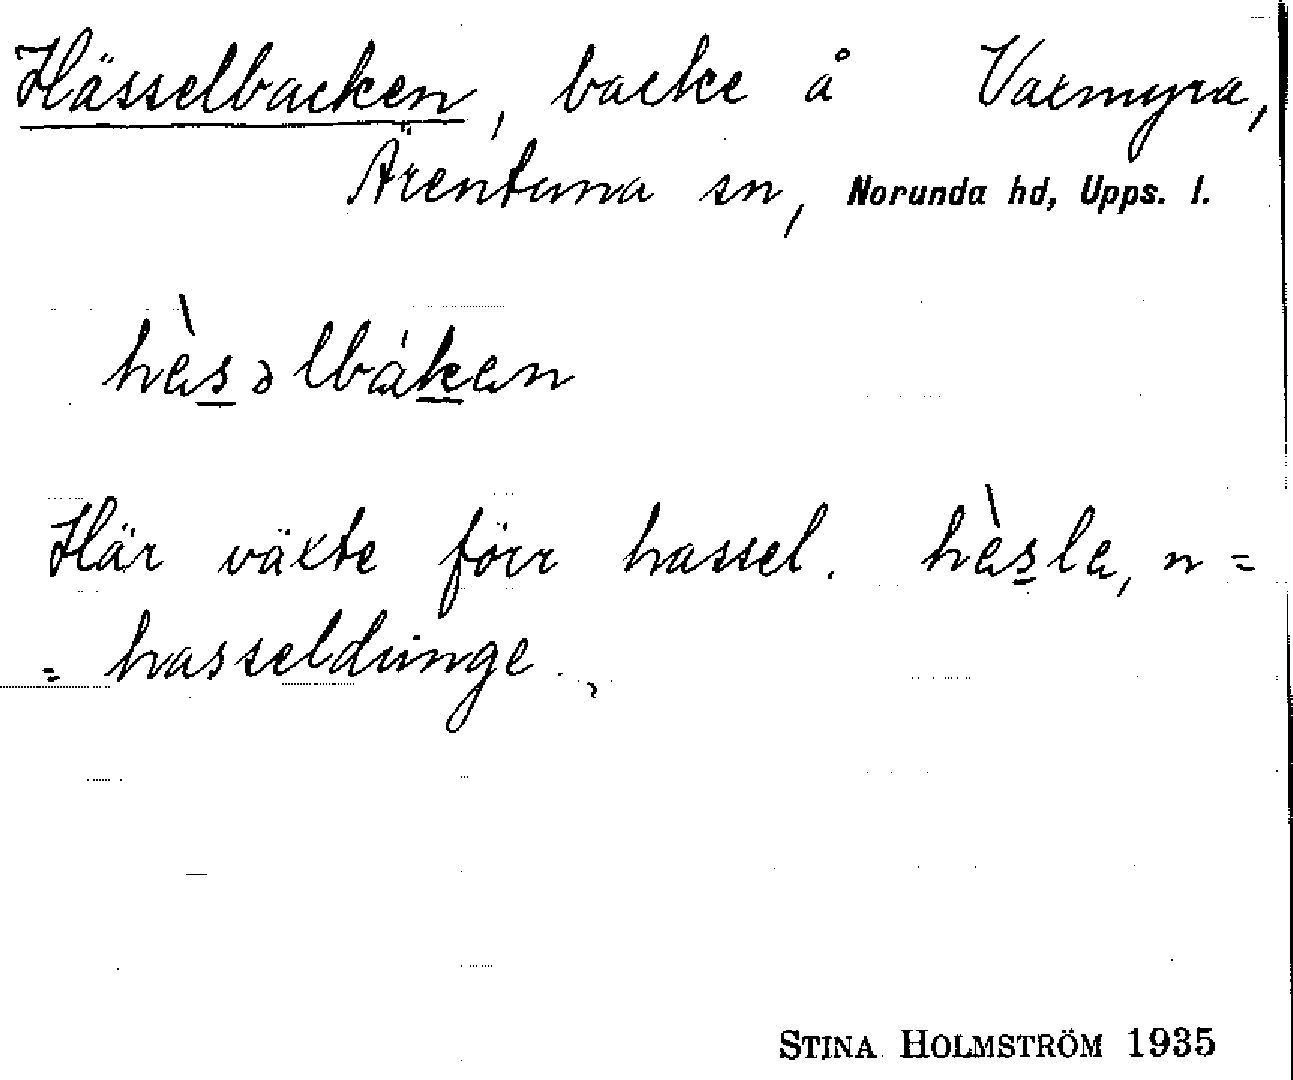 Hässelbacken, backe å Vaxmyra,
Ärentuna sn, Norunda hd, Upps. l.
hàsəlbákan
Här växte förr hassel. hàsla, n =
= hasseldunge.
STINA HOLMSTRÖM 1935